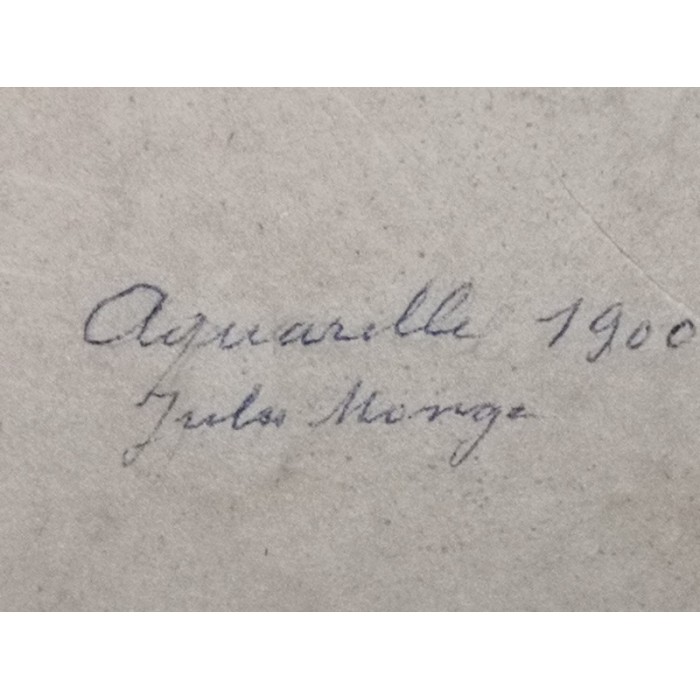 Aquarelle 1900
Jules Monge